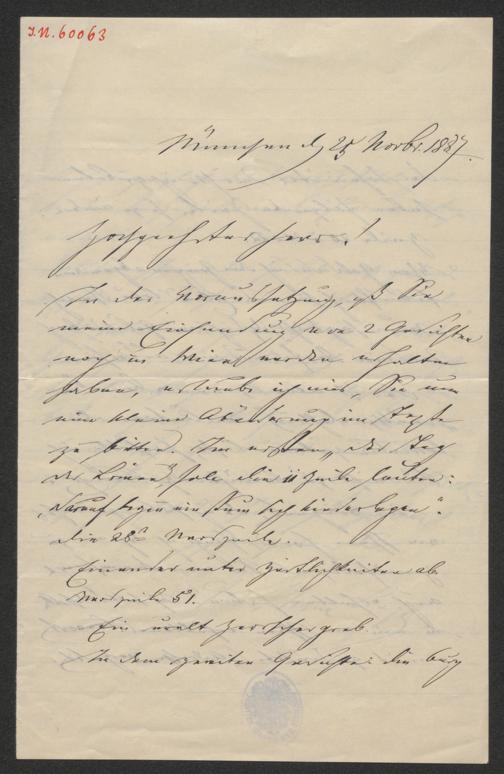 I.N. 60063
München d. 25 Novbr. 1887.
Hochgeehrter Herr!
In der Voraussetzung, daß Sie
meine Einsendung von 2 Gedichten
noch in Wien werden erhalten
haben, erlaube ich mir, Sie um
eine kleine Abänderung im Texte
zu bitten. Im ersten, der
der soll die 11 Zeile lauten:
Darauf
die 28te Verszeile.
Einander unter Zärtlichkeiten ab.
Verszeile 51.
Ein uralt Herrschergrab.
In dem zweiten Gedichte: die